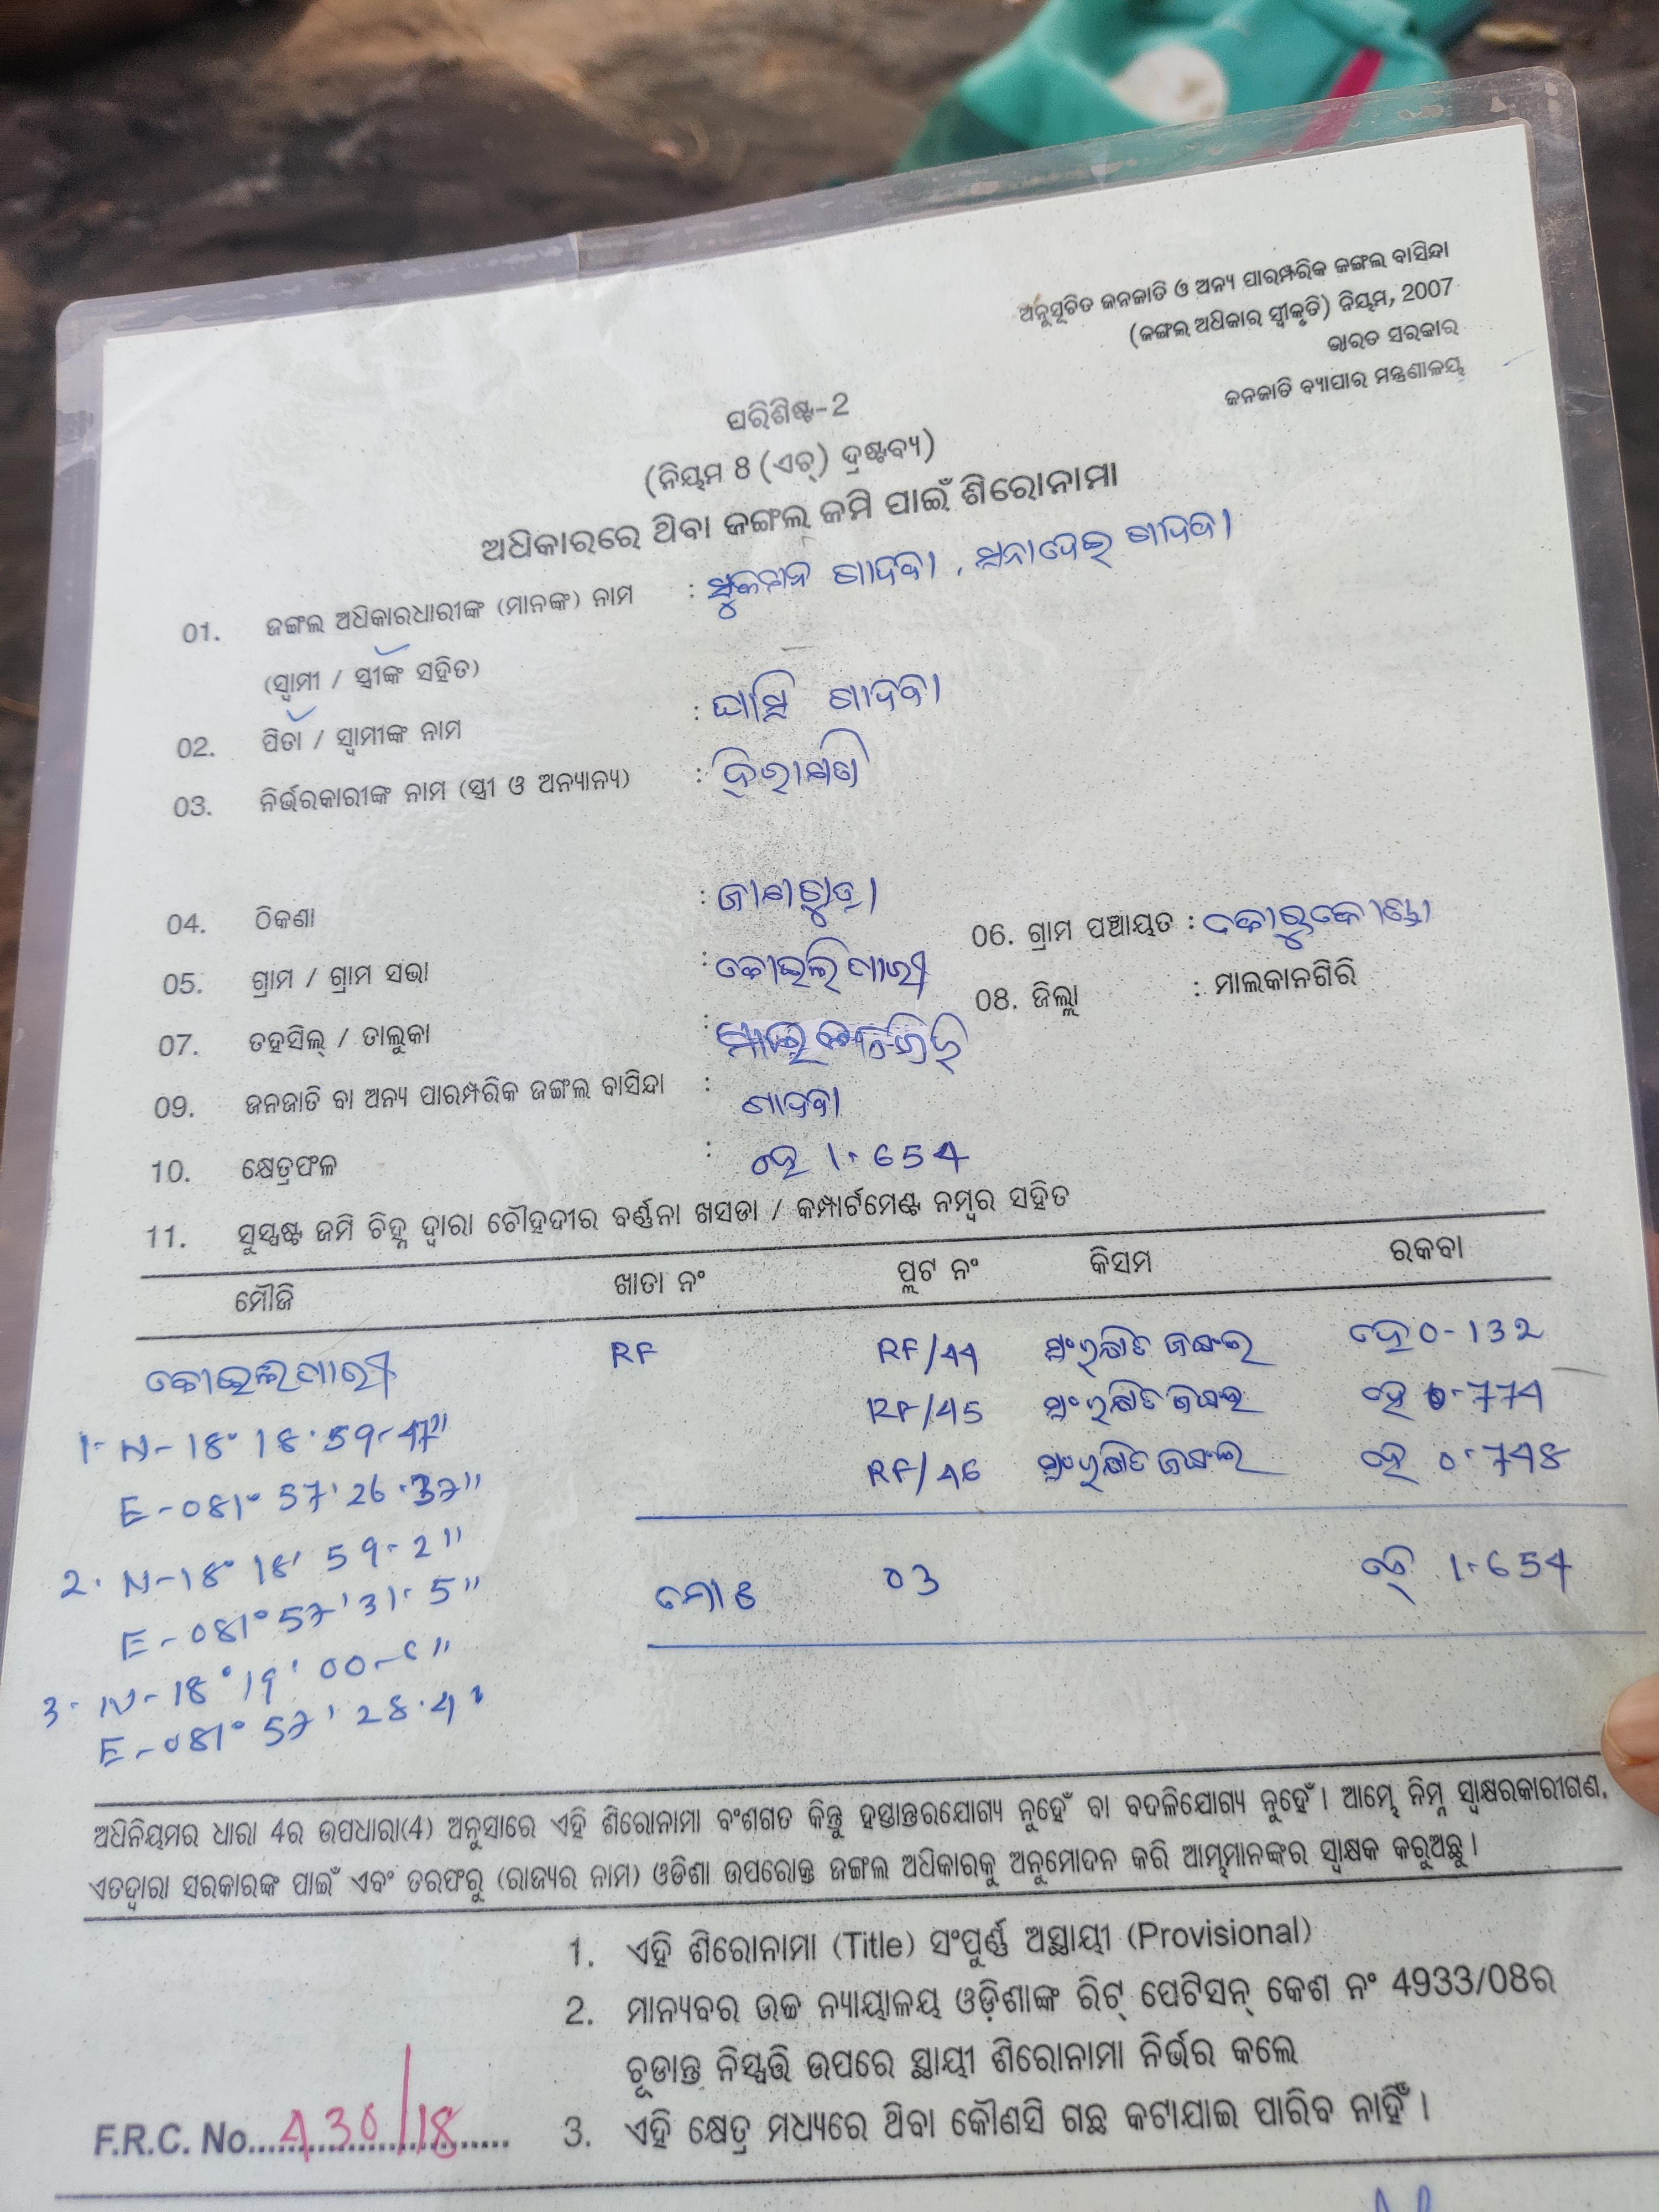 ଅନୁସୂଚିତ ଜନଜାତି ଓ ଅନ୍ୟ ପାରମ୍ପରିକ ଜଙ୍ଗଲ ବାସିନ୍ଦା
(ଜଙ୍ଗଲ ଅଧିକାର ସ୍ୱୀକୃତି) ନିୟମ, 2007
ଭାରତ ସରକାର
ଜନଜାତି ବ୍ୟାପାର ମନ୍ତ୍ରଣାଳୟ
ପରିଶିଷ୍ଟ-2
(ନିୟମ 8 (ଏଚ୍) ଦ୍ରଷ୍ଟବ୍ୟ)
ଅଧିକାରରେ ଥିବା ଜଙ୍ଗଲ ଜମି ପାଇଁ ଶିରୋନାମା
01. ଜଙ୍ଗଲ ଅଧିକାରଧାରୀଙ୍କ (ମାନଙ୍କ) ନାମ : ଗାଦବା , ଗାଦବା
(ସ୍ୱାମୀ / ସ୍ତ୍ରୀଙ୍କ ସହିତ)
02. ପିତା / ସ୍ୱାମୀଙ୍କ ନାମ : ଘାସି ଗାଦବା
03. ନିର୍ଭରକାରୀଙ୍କ ନାମ (ସ୍ତ୍ରୀ ଓ ଅନ୍ୟାନ୍ୟ) :
04. ଠିକଣା :
05. ଗ୍ରାମ / ଗ୍ରାମ ସଭା : 06. ଗ୍ରାମ ପଞ୍ଚାୟତ :
07. ତହସିଲ୍ / ତାଲୁକା : 08. ଜିଲ୍ଲା : ମାଲକାନଗିରି
09. ଜନଜାତି ବା ଅନ୍ୟ ପାରମ୍ପରିକ ଜଙ୍ଗଲ ବାସିନ୍ଦା : ଗାଦବା
10. କ୍ଷେତ୍ରଫଳ : ହେ 1.654
11. ସୁସ୍ପଷ୍ଟ ଜମି ଚିହ୍ନ ଦ୍ୱାରା ଚୌହଦୀର ବର୍ଣ୍ଣନା ଖସଡା / କମ୍ପାର୍ଟମେଣ୍ଟ ନମ୍ବର ସହିତ
ମୌଜି ଖାତା ନଂ ପ୍ଲଟ ନଂ କିସମ ରକବା
RF RF/44 ସଂରକ୍ଷିତ ଜଙ୍ଗଲ ହେ 0-132
RF/45 ସଂରକ୍ଷିତ ଜଙ୍ଗଲ ହେ 0-774
RF/46 ସଂରକ୍ଷିତ ଜଙ୍ଗଲ ହେ 0-748
1- N-18° 18' 59-47"
E-081° 57' 26.37"
2. N-18° 18' 59-2"
E-081° 57' 31.5"
ମୋଟ 03 1.654
3- N-18° 19' 00-
E-081° 57' 28.4"
ଅଧିନିୟମର ଧାରା 4ର ଉପଧାରା(4) ଅନୁସାରେ ଏହି ଶିରୋନାମା ବଂଶଗତ କିନ୍ତୁ ହସ୍ତାନ୍ତରଯୋଗ୍ୟ ନୁହେଁ ବା ବଦଳିଯୋଗ୍ୟ ନୁହେଁ । ଆମ୍ଭେ ନିମ୍ନ ସ୍ୱାକ୍ଷରକାରୀଗଣ,
ଏତଦ୍ୱାରା ସରକାରଙ୍କ ପାଇଁ ଏବଂ ତରଫରୁ (ରାଜ୍ୟର ନାମ) ଓଡିଶା ଉପରୋକ୍ତ ଜଙ୍ଗଲ ଅଧିକାରକୁ ଅନୁମୋଦନ କରି ଆମ୍ଭମାନଙ୍କର ସ୍ୱାକ୍ଷକ କରୁଅଛୁ ।
1. ଏହି ଶିରୋନାମା (Title) ସଂପୂର୍ଣ୍ଣ ଅସ୍ଥାୟୀ (Provisional)
2. ମାନ୍ୟବର ଉଚ୍ଚ ନ୍ୟାୟାଳୟ ଓଡ଼ିଶାଙ୍କ ରିଟ୍ ପେଟିସନ୍ କେଶ ନଂ 4933/08ର
ଚୂଡାନ୍ତ ନିସ୍ପତ୍ତି ଉପରେ ସ୍ଥାୟୀ ଶିରୋନାମା ନିର୍ଭର କଲେ
3. ଏହି କ୍ଷେତ୍ର ମଧ୍ୟରେ ଥିବା କୌଣସି ଗଛ କଟାଯାଇ ପାରିବ ନାହିଁ ।
F.R.C. No. 430/18